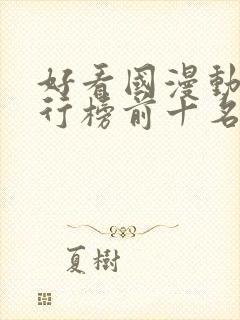 好看國漫動
行榜前十名
夏樹